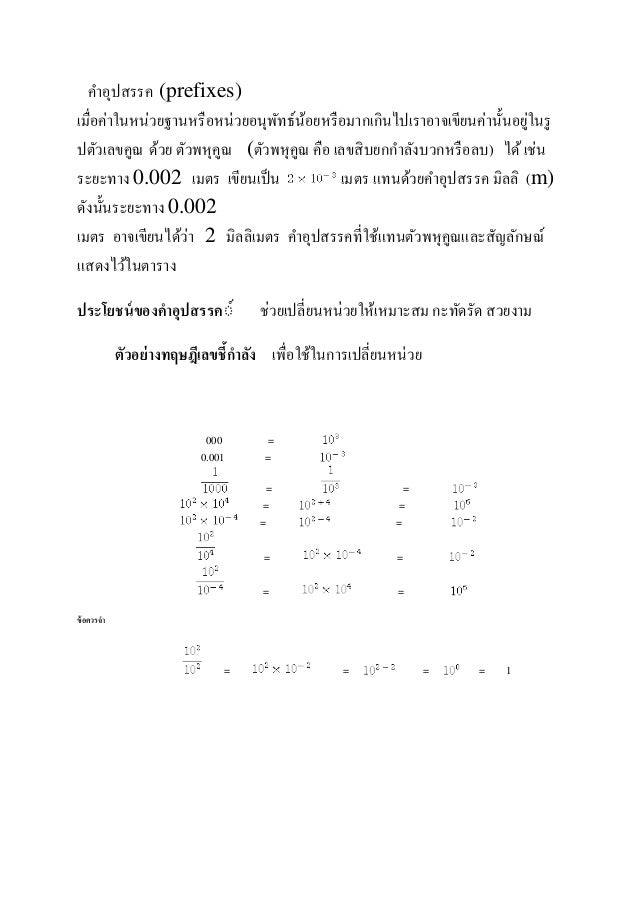 คำอุปสรรค (prefixes)
เมื่อค่าในหน่วยฐานหรือหน่วยอนุพัทธ์น้อยหรือมากเกินไปเราอาจเขียนค่านั้นอยู่ในรู
ปตัวเลขคูณ ด้วย ตัวพหุคูณ (ตัวพหุคูณ คือ เลขสิบยกกำลังบวกหรือลบ) ได้ เช่น
ระยะทาง 0.002 เมตร เขียนเป็น 2 × 10⁻³ เมตร แทนด้วยคำอุปสรรค มิลลิ (m)
ดังนั้นระยะทาง 0.002
เมตร อาจเขียนได้ว่า 2 มิลลิเมตร คำอุปสรรคที่ใช้แทนตัวพหุคูณและสัญลักษณ์
แสดงไว้ในตาราง
ประโยชน์ของคำอุปสรรค์ ช่วยเปลี่ยนหน่วยให้เหมาะสม กะทัดรัด สวยงาม
ตัวอย่างทฤษฎีเลขชี้กำลัง เพื่อใช้ในการเปลี่ยนหน่วย
000 = 10³
0.001 = 10⁻³
1/1000 = 1/10³ = 10⁻³
10² × 10⁴ = 10²⁺⁴ = 10⁶
10² × 10⁻⁴ = 10²⁻⁴ = 10⁻²
10²/10⁴ = 10² × 10⁻⁴ = 10⁻²
10²/10⁻⁴ = 10² × 10⁴ = 10⁶
ข้อควรจำ
10²/10² = 10² × 10⁻² = 10²⁻² = 10⁰ = 1